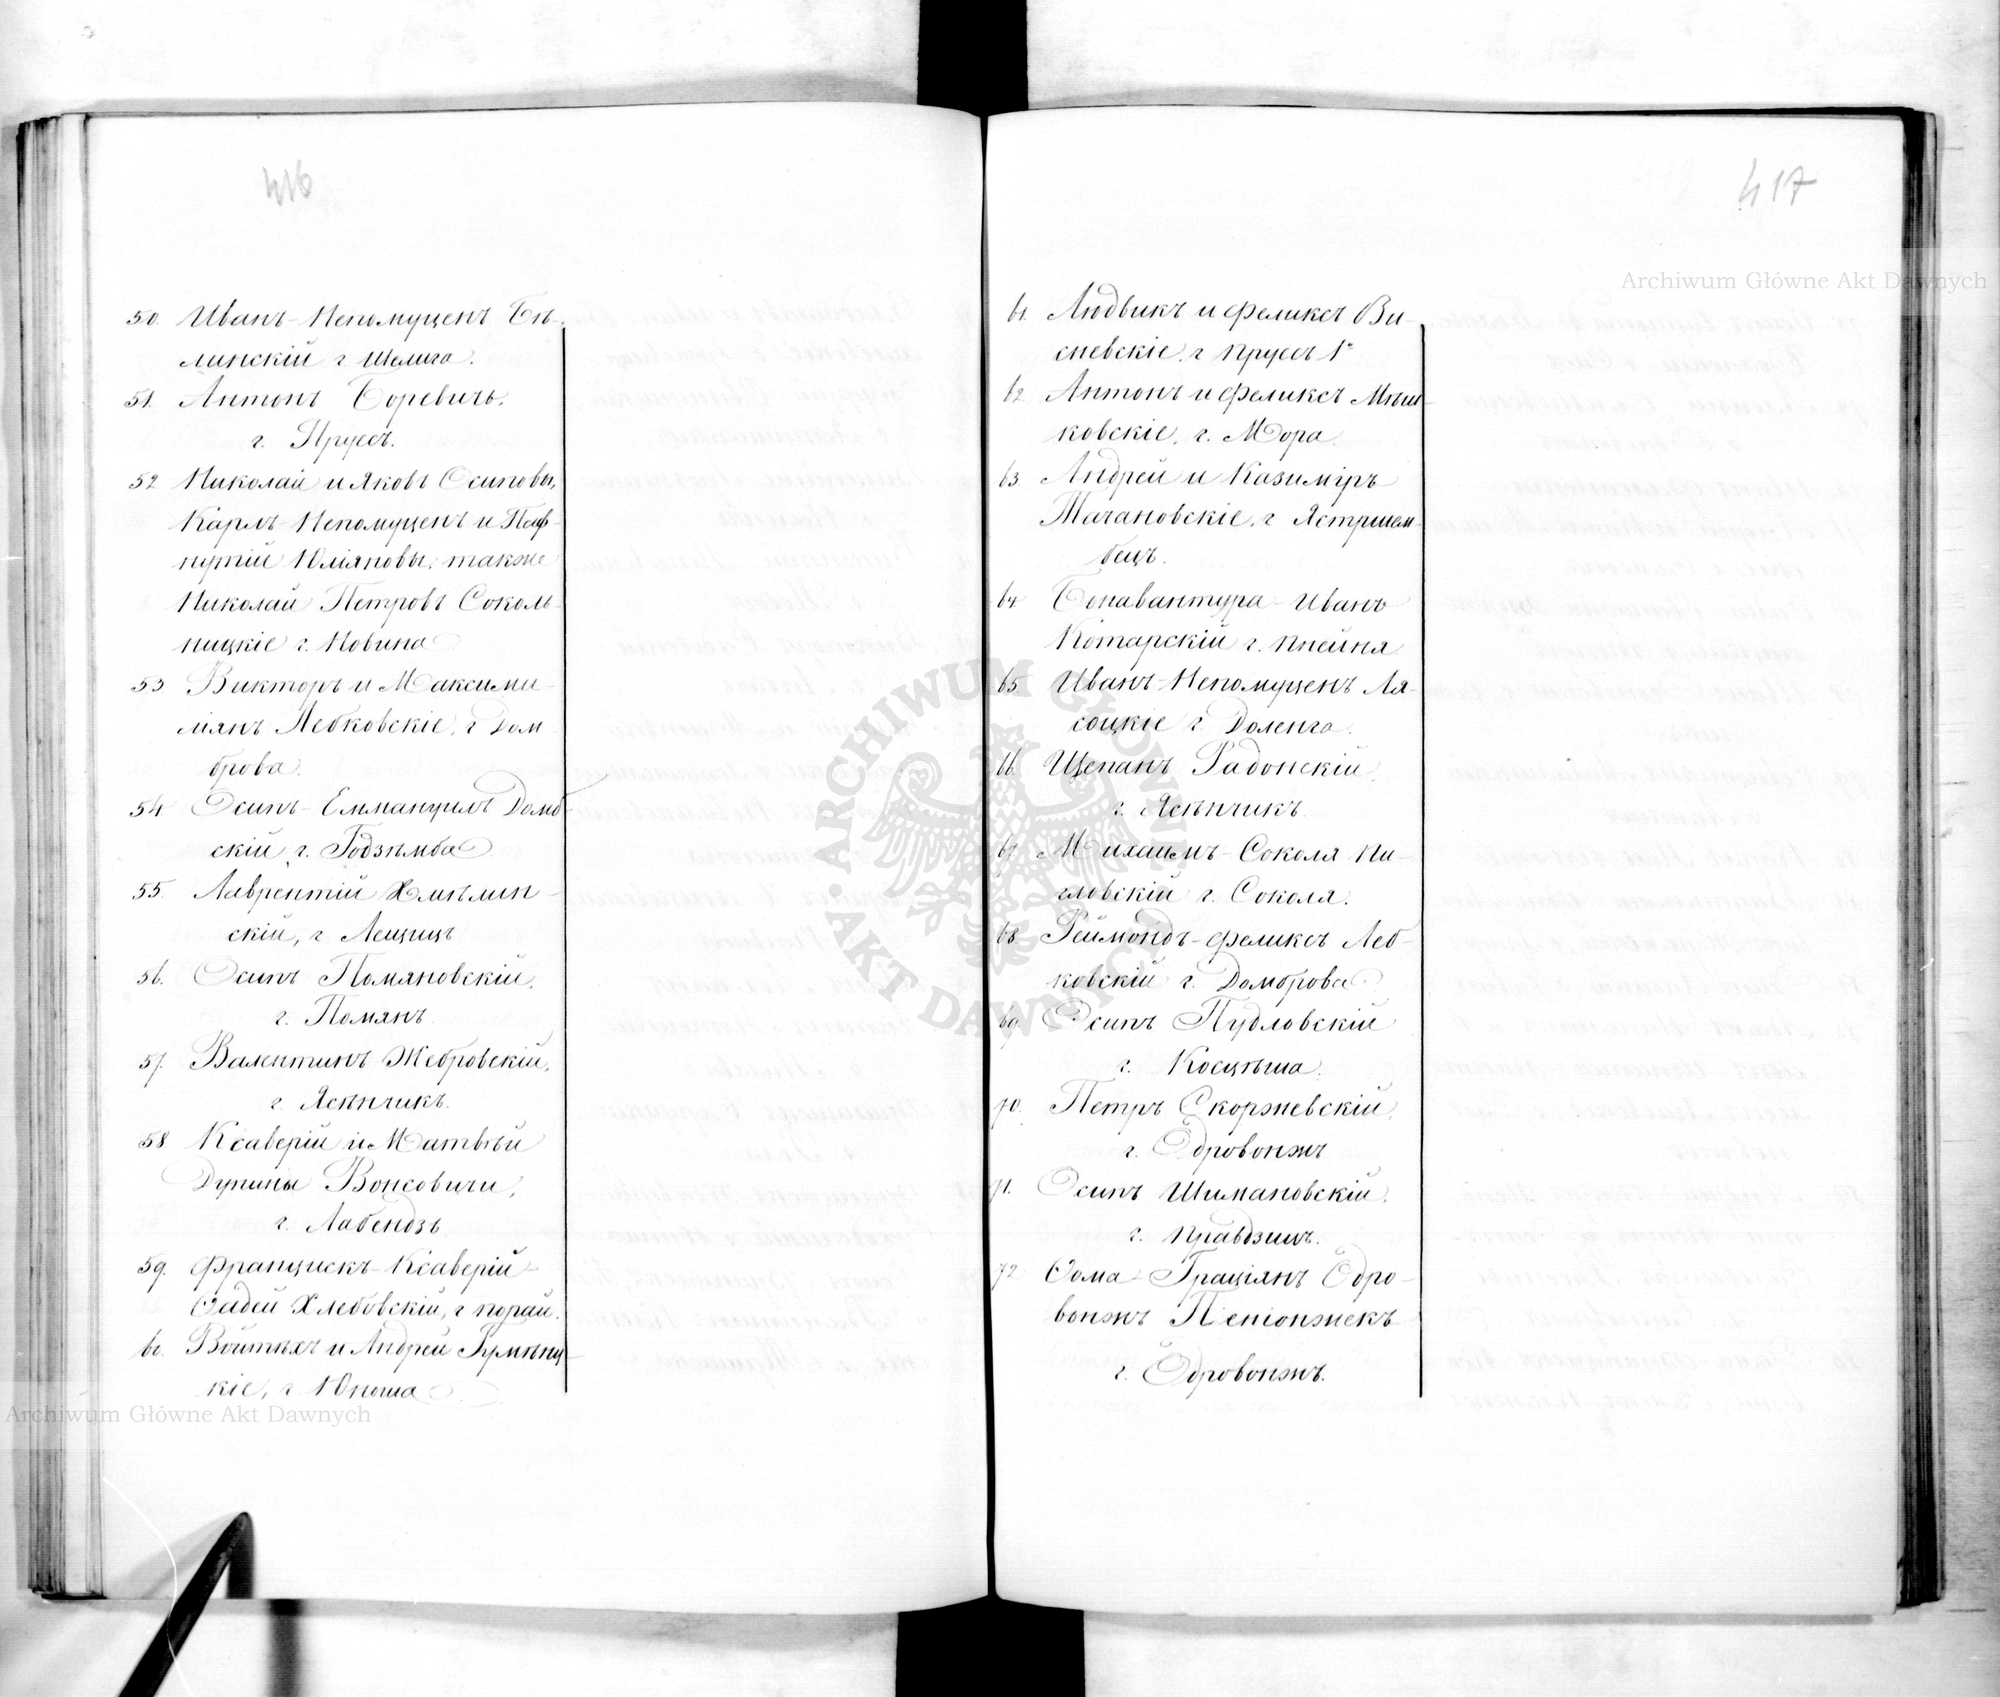 416
50. Иванъ-Непомуценъ Бѣ-
линскій г. Шелига.
51. Антонъ Боревичъ,
г. Прусъ.
52 Николай и Яковъ Осиповы,
Карлъ-Непомуценъ и Паф-
нутій Юліяновы, также
Николай Петровъ Соколь-
ницкіе г. Новина
53 Викторъ и Максими-
ліянъ Лебковскіе, г. Дом-
брова.
54 Осипъ-Еммануилъ Домб-
скій г. Годзѣмба
55. Лаврентій Хмѣлин-
скій, г. Лещицъ
56. Осипъ Помяновскій,
г. Помянъ.
57. Валентинъ Жебровскій,
г. Ясѣнчикъ.
58 Ксаверій и Матвѣй
Дунины Вонсовичи,
г. Лабендзь
59. Францискъ-Ксаверій-
Ѳадей Хлебовскій, г. Порай.
60. Войтѣхъ и Андрей Гумѣнц-
кіе, г. Юноша
417
61. Людвикъ и Феликсъ Ви-
сневскіе, г. Прусъ 1°
62 Антонъ и Феликсъ Мѣш-
ковскіе, г. Мора.
63 Андрей и Казиміръ
Мачановскіе, г. Ястршем-
бецъ.
64 Бонавантура-Иванъ
Котарскій г. Пнейня
65. Иванъ-Непомуценъ Ля-
соцкіе г. Доленга.
66. Щепанъ Радонскій,
г. Ясѣнчикъ.
67 Михаилъ-Соколя Пи-
гловскій г. Соколя.
68 Реймондъ-Феликсъ Леб-
ковскій г. Домброва
69. Осипъ Пудловскій
г. Косцѣша.
70. Петръ Скоржевскій,
г. Одровонжъ
71. Осипъ Шимановскій,
г. Правдзиць.
72 Ѳома-Граціянъ Одро-
вонжъ Пеніонжекъ
г. Одровонжъ.
Archiwum Główne Akt Dawnych
Archiwum Główne Akt Dawnych
ARCHIWUM GŁÓWNE AKT DAWNYCH